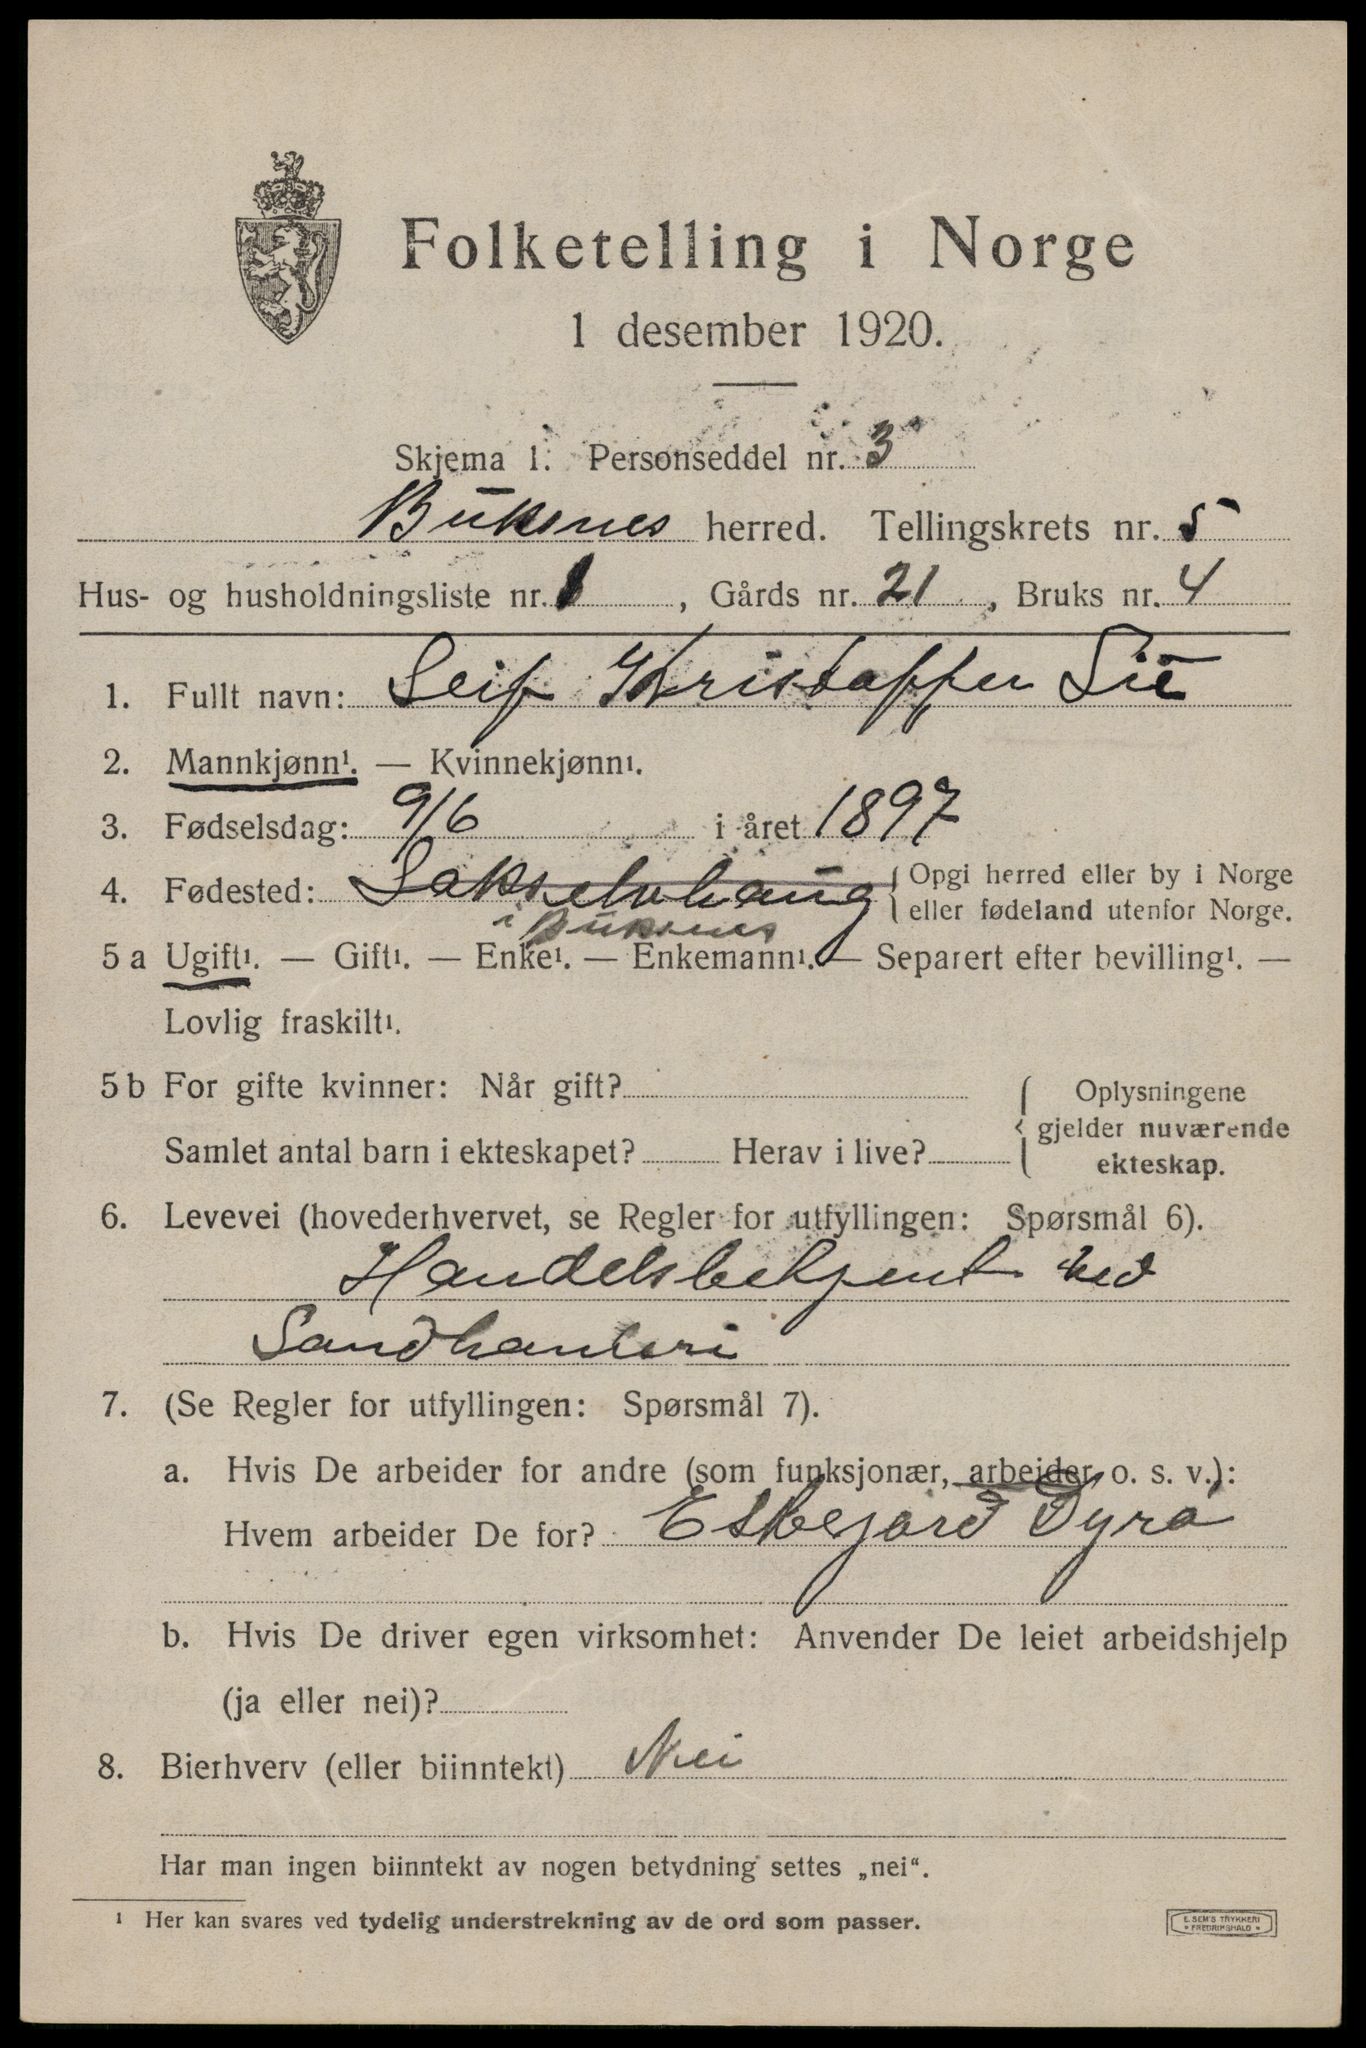 Folketelling i Norge
1 desember 1920.
Skjema 1. Personseddel nr. 3
Buksnes herred. Tellingskrets nr. 5
Hus- og husholdningsliste nr. 1, Gårds nr. 21, Bruks nr. 4
1. Fullt navn: Leif Kristoffer Lie
2. Mannkjønn¹. — Kvinnekjønn¹.
3. Fødselsdag: 9/6 i året 1897
4. Fødested: { Opgi herred eller by i Norge
eller fødeland utenfor Norge.
i Buksnes
5 a Ugift¹. — Gift¹. — Enke¹. — Enkemann¹. — Separert efter bevilling¹. —
Lovlig fraskilt¹.
5 b For gifte kvinner: Når gift? { Oplysningene
gjelder nuværende
Samlet antal barn i ekteskapet? Herav i live?
ekteskap.
6. Levevei (hovederhvervet, se Regler for utfyllingen: Spørsmål 6).
Handelsbetjent ved
Landhanleri
7. (Se Regler for utfyllingen: Spørsmål 7).
a. Hvis De arbeider for andre (som funksjonær, arbeider o. s. v.):
Hvem arbeider De for?
b. Hvis De driver egen virksomhet: Anvender De leiet arbeidshjelp
(ja eller nei)?
8. Bierhverv (eller biinntekt) Nei
Har man ingen biinntekt av nogen betydning settes „nei“.
¹ Her kan svares ved tydelig understrekning av de ord som passer.
E. SEM'S TRYKKERI
FREDRIKSHALD